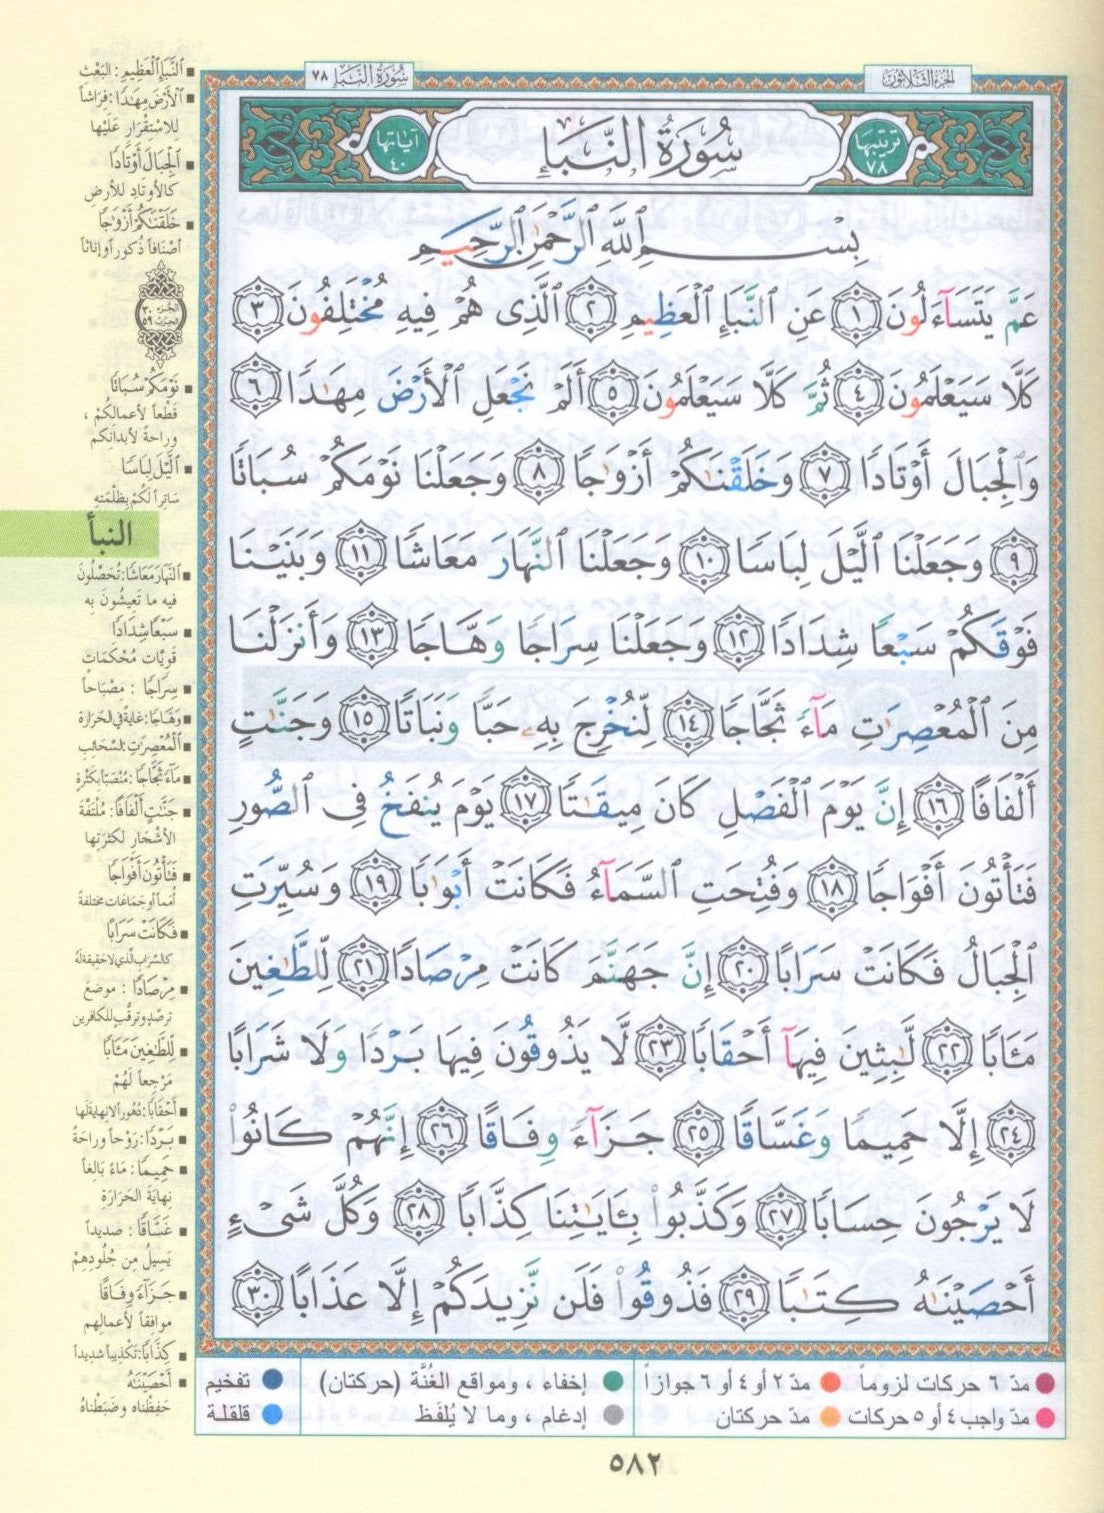 الجزء الثلاثون
سُورَةُ النَّبَإِ ٧٨
ترتيبها ٧٨
سُورَةُ النَّبَإِ
آياتها ٤٠
بِسْمِ ٱللَّهِ ٱلرَّحْمَٰنِ ٱلرَّحِيمِ
عَمَّ يَتَسَآءَلُونَ ١ عَنِ ٱلنَّبَإِ ٱلْعَظِيمِ ٢ ٱلَّذِى هُمْ فِيهِ مُخْتَلِفُونَ ٣
كَلَّا سَيَعْلَمُونَ ٤ ثُمَّ كَلَّا سَيَعْلَمُونَ ٥ أَلَمْ نَجْعَلِ ٱلْأَرْضَ مِهَٰدًا ٦
وَٱلْجِبَالَ أَوْتَادًا ٧ وَخَلَقْنَٰكُمْ أَزْوَٰجًا ٨ وَجَعَلْنَا نَوْمَكُمْ سُبَاتًا
٩ وَجَعَلْنَا ٱلَّيْلَ لِبَاسًا ١٠ وَجَعَلْنَا ٱلنَّهَارَ مَعَاشًا ١١ وَبَنَيْنَا
فَوْقَكُمْ سَبْعًا شِدَادًا ١٢ وَجَعَلْنَا سِرَاجًا وَهَّاجًا ١٣ وَأَنزَلْنَا
مِنَ ٱلْمُعْصِرَٰتِ مَآءً ثَجَّاجًا ١٤ لِّنُخْرِجَ بِهِۦ حَبًّا وَنَبَاتًا ١٥ وَجَنَّٰتٍ
أَلْفَافًا ١٦ إِنَّ يَوْمَ ٱلْفَصْلِ كَانَ مِيقَٰتًا ١٧ يَوْمَ يُنفَخُ فِى ٱلصُّورِ
فَتَأْتُونَ أَفْوَاجًا ١٨ وَفُتِحَتِ ٱلسَّمَآءُ فَكَانَتْ أَبْوَٰبًا ١٩ وَسُيِّرَتِ
ٱلْجِبَالُ فَكَانَتْ سَرَابًا ٢٠ إِنَّ جَهَنَّمَ كَانَتْ مِرْصَادًا ٢١ لِّلطَّٰغِينَ
مَـَٔابًا ٢٢ لَّٰبِثِينَ فِيهَآ أَحْقَابًا ٢٣ لَّا يَذُوقُونَ فِيهَا بَرْدًا وَلَا شَرَابًا
٢٤ إِلَّا حَمِيمًا وَغَسَّاقًا ٢٥ جَزَآءً وِفَاقًا ٢٦ إِنَّهُمْ كَانُوا۟
لَا يَرْجُونَ حِسَابًا ٢٧ وَكَذَّبُوا۟ بِـَٔايَٰتِنَا كِذَّابًا ٢٨ وَكُلَّ شَىْءٍ
أَحْصَيْنَٰهُ كِتَٰبًا ٢٩ فَذُوقُوا۟ فَلَن نَّزِيدَكُمْ إِلَّا عَذَابًا ٣٠
النَّبَإِ الْعَظِيمِ: البَعْث
الْأَرْضَ مِهَٰدًا: فِرَاشاً
للاسْتِقْرَارِ عَلَيْها
الْجِبَالَ أَوْتَادًا
كالأوتادِ للأرض
خَلَقْنَٰكُمْ أَزْوَٰجًا
أصْنَافاً ذُكوراً وإناثاً
الجزء ٣٠
الحزب ٥٩
نَوْمَكُمْ سُبَاتًا
قَطْعاً لأعمالِكُمْ،
وراحةً لأبدانِكم
الَّيْلَ لِبَاسًا
سَاتِراً لَكُمْ بِظُلْمَتِهِ
النبأ
النَّهَارَ مَعَاشًا: تُحَصِّلُونَ
فيه ما تَعِيشُونَ بِه
سَبْعًا شِدَادًا
قَوِيَّات مُحْكَمَاتٍ
سِرَاجًا: مِصْبَاحاً
وَهَّاجًا: غايةً في الحَرَارَة
الْمُعْصِرَٰتِ: السَّحَائِبِ
مَآءً ثَجَّاجًا: مُنْصَبّاً بِكَثْرَةٍ
جَنَّٰتٍ أَلْفَافًا: مُلْتَفَّةَ
الأشْجَارِ لكثرَتها
فَتَأْتُونَ أَفْوَاجًا
أُمَماً أو جَمَاعَات مختلفةً
فَكَانَتْ سَرَابًا
كالسَّرَابِ الَّذي لا حَقِيقَةَ لهُ
مِرْصَادًا: موضعَ
ترصُّدٍ وترقُّبٍ للكافرين
لِّلطَّٰغِينَ مَـَٔابًا
مَرْجِعاً لَهُمْ
أَحْقَابًا: دُهُوراً لا نِهايةَ لَها
بَرْدًا: رَوْحاً وراحَةً
حَمِيمًا: مَاءً بَالِغاً
نِهايَةَ الحَرَارَةِ
غَسَّاقًا: صديداً
يَسِيلُ مِن جُلُودِهِمْ
جَزَآءً وِفَاقًا
موافِقاً لأعمالِهم
كِذَّابًا: تَكْذِيباً شديداً
أَحْصَيْنَٰهُ
حَفِظْناه وضَبَطْناهُ
مدّ ٦ حركات لزوماً
مدّ ٢ أو ٤ أو ٦ جوازاً
إخفاء، ومواقع الغُنَّة (حركتان)
تفخيم
مدّ واجب ٤ أو ٥ حركات
مدّ حركتان
إدغام، وما لا يُلفَظ
قلقلة
٥٨٢